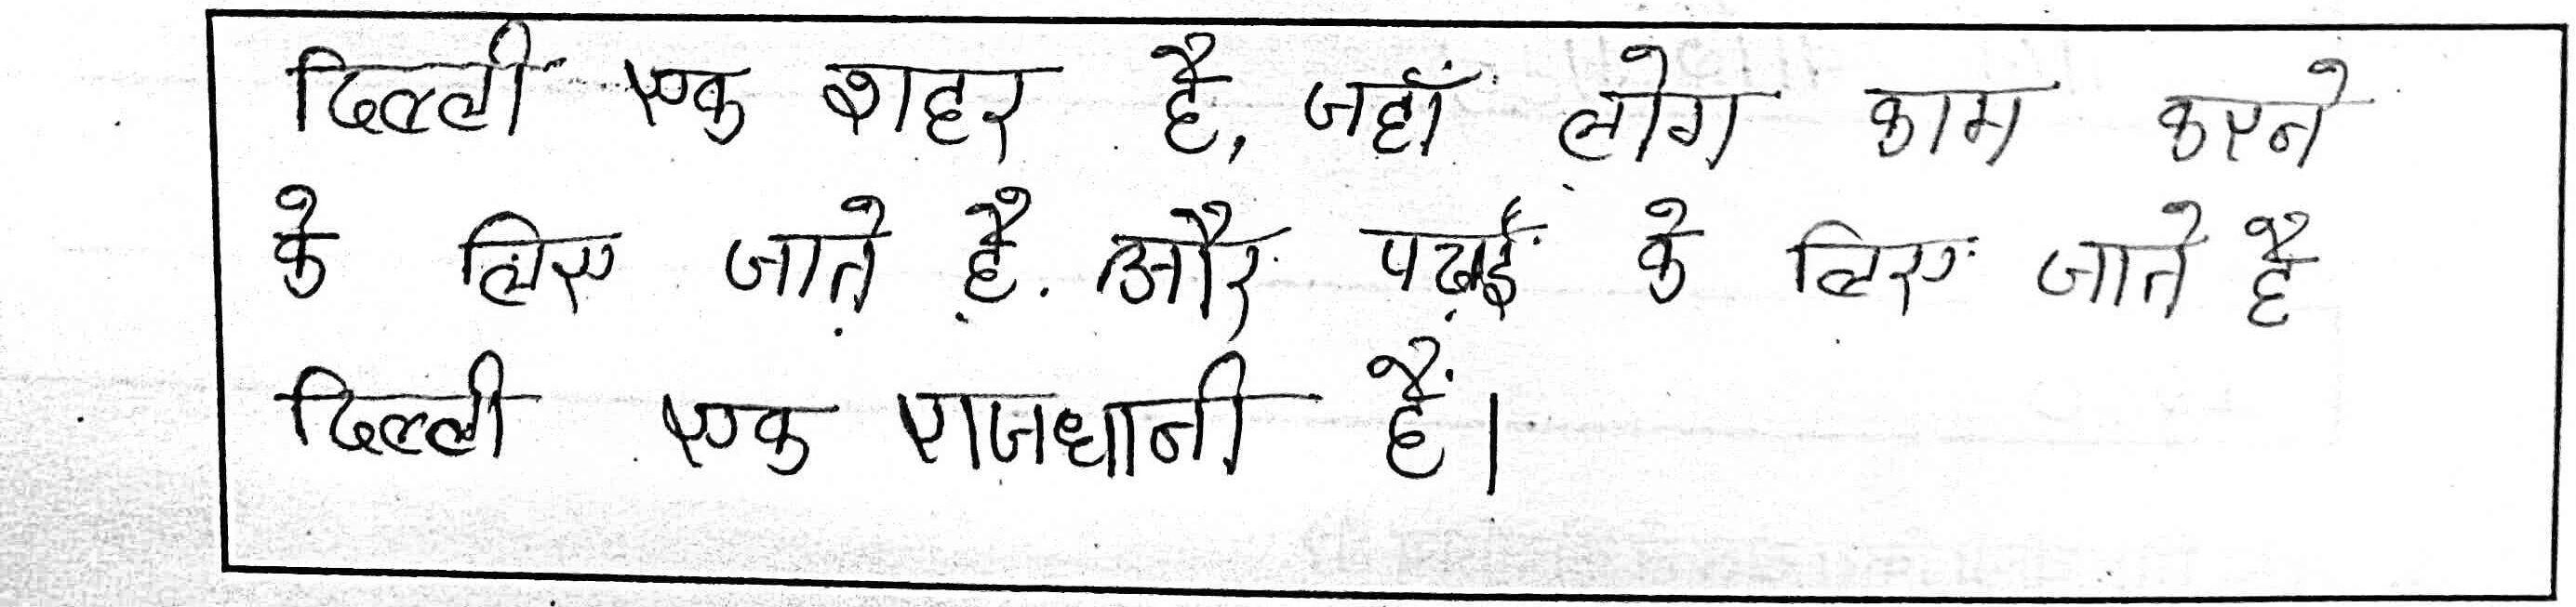 दिल्ली एक शहर है, जहाँ लोग काम करने
के लिए जाते है. और पढाई के लिए जाते है
दिल्ली एक राजधानी हैं।